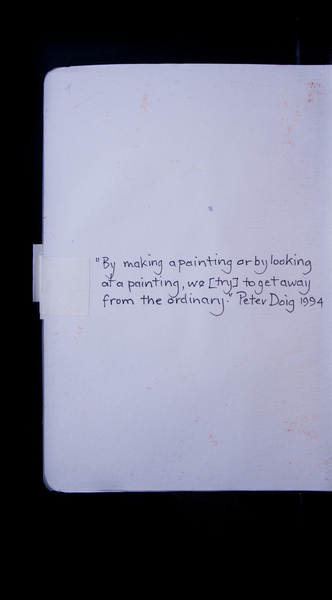 "By making a painting or by looking
at a painting, we [try] to get away
from the ordinary." Peter Doig 1994